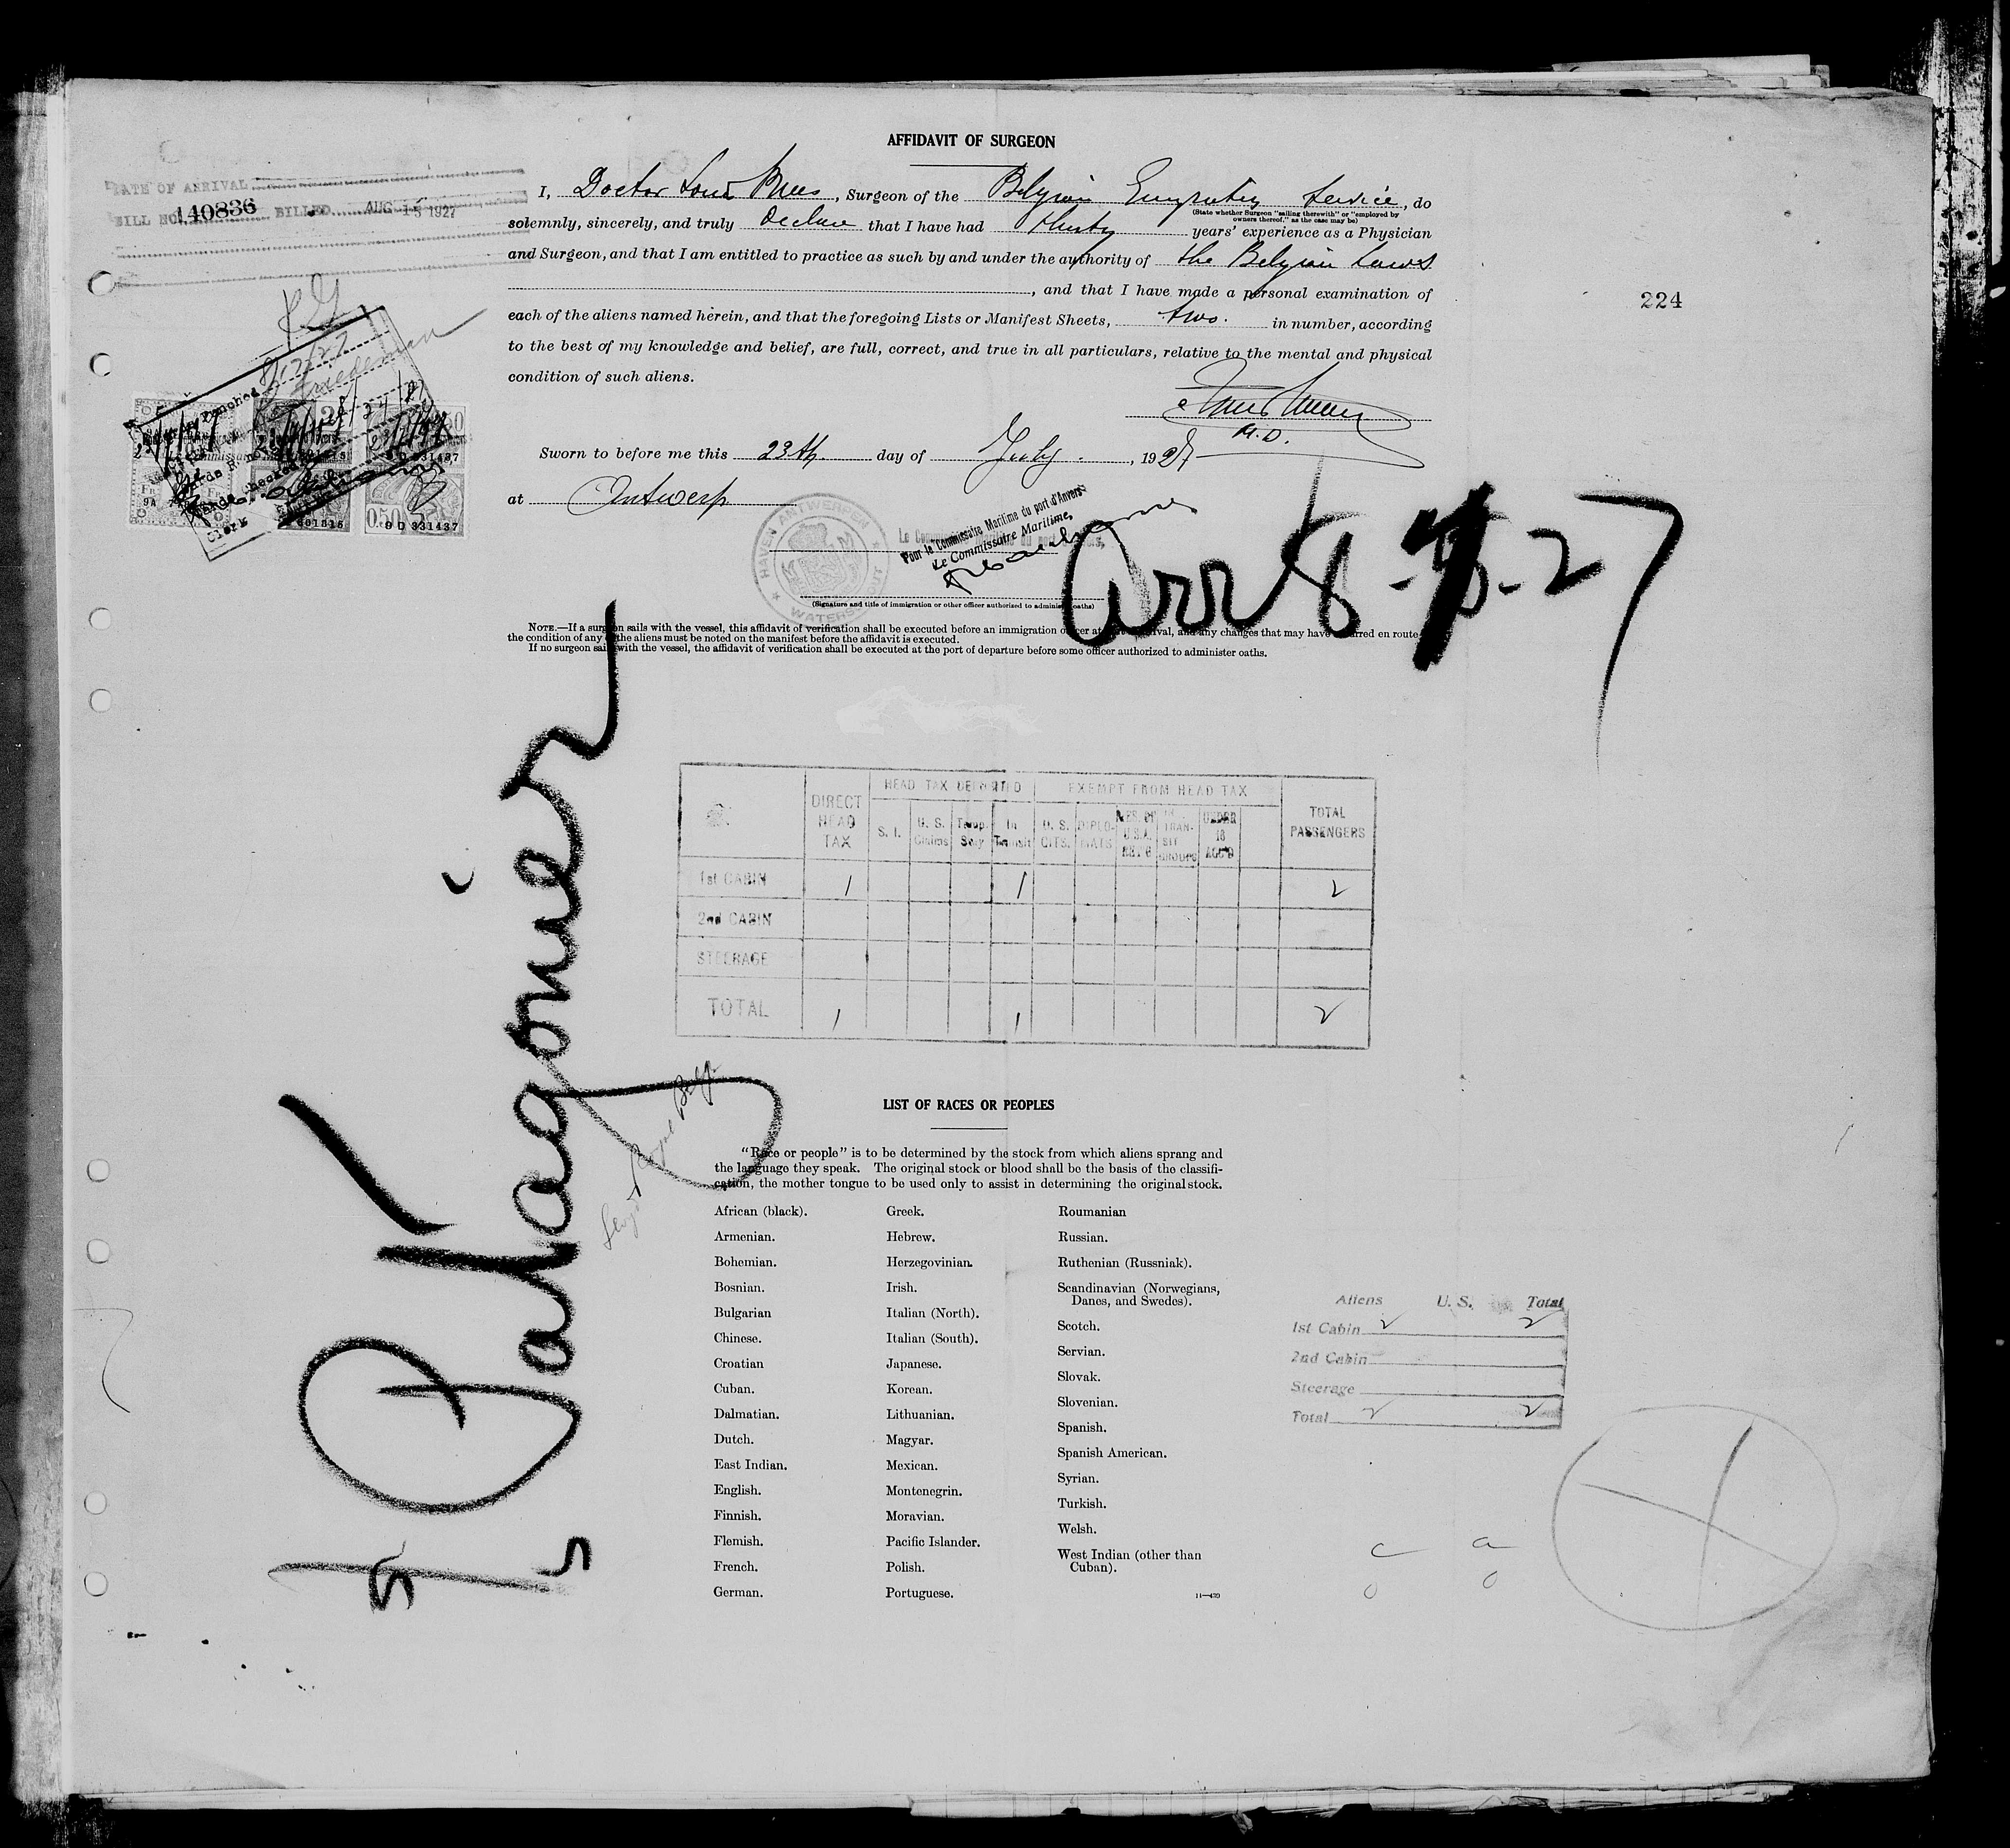 AFFIDAVIT OF SURGEON
DATE OF ARRIVAL
BILL NO. 140836 BILLED AUG 15 1927
I, Doctor Louis Mees, Surgeon of the Belgian Service, do
(State whether Surgeon "sailing therewith" or "employed by
owners thereof," as the case may be)
solemnly, sincerely, and truly declare that I have had thirty years' experience as a Physician
and Surgeon, and that I am entitled to practice as such by and under the authority of the Belgian Laws
, and that I have made a personal examination of
each of the aliens named herein, and that the foregoing Lists or Manifest Sheets, two. in number, according
to the best of my knowledge and belief, are full, correct, and true in all particulars, relative to the mental and physical
condition of such aliens.
224
M.D.
Sworn to before me this 23th day of July, 1927
at Antwerp
HAVEN ANTWERPEN
WATERSCHOUT
Pour le Commissaire Maritime du port d'Anvers
Le Commissaire Maritime,
(Signature and title of immigration or other officer authorized to administer oaths)
Friedman
Clerk
FR
9A
0.50
9D 331437
9D 331437
Arr 8-8-27
NOTE.—If a surgeon sails with the vessel, this affidavit of verification shall be executed before an immigration officer at arrival, and any changes that may have occurred en route
the condition of any of the aliens must be noted on the manifest before the affidavit is executed.
If no surgeon sails with the vessel, the affidavit of verification shall be executed at the port of departure before some officer authorized to administer oaths.
DIRECT HEAD TAX
HEAD TAX DEPOSITED
EXEMPT FROM HEAD TAX
TOTAL PASSENGERS
S. I. U. S. Claims Temp. Scry In Transit U. S. CITS. DIPLOMATS RES. OF U.S.A. RET'G IN TRANSIT GROUPS UNDER 16 ACC'D
1st CABIN 1 1 2
2nd CABIN
STEERAGE
TOTAL 1 1 2
SS Patagonier
Lloyd Royal Belge
LIST OF RACES OR PEOPLES
"Race or people" is to be determined by the stock from which aliens sprang and
the language they speak. The original stock or blood shall be the basis of the classifi-
cation, the mother tongue to be used only to assist in determining the original stock.
African (black).
Armenian.
Bohemian.
Bosnian.
Bulgarian
Chinese.
Croatian
Cuban.
Dalmatian.
Dutch.
East Indian.
English.
Finnish.
Flemish.
French.
German.
Greek.
Hebrew.
Herzegovinian.
Irish.
Italian (North).
Italian (South).
Japanese.
Korean.
Lithuanian.
Magyar.
Mexican.
Montenegrin.
Moravian.
Pacific Islander.
Polish.
Portuguese.
Roumanian
Russian.
Ruthenian (Russniak).
Scandinavian (Norwegians,
Danes, and Swedes).
Scotch.
Servian.
Slovak.
Slovenian.
Spanish.
Spanish American.
Syrian.
Turkish.
Welsh.
West Indian (other than
Cuban).
11—439
Aliens U. S. Total
1st Cabin 2 2
2nd Cabin
Steerage
Total 2 2
c a
0 0